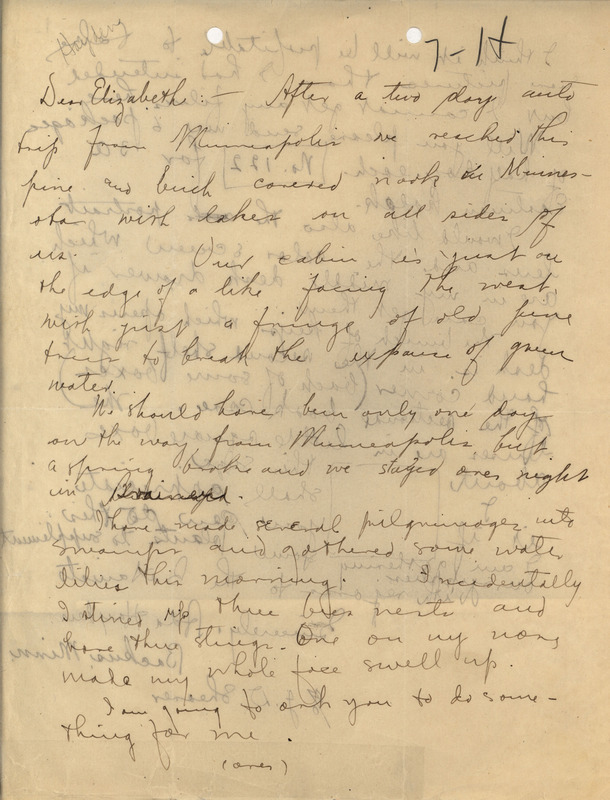 7-14
Dear Elizabeth:- After a two day auto
trip from Minneapolis we reached this
pine and birch covered nook in Minnes-
ota with lakes on all sides of
us. Our cabin is just on
the edge of a like facing the west,
with just a fringe of old pine
trees to break the expanse of green
water.
We should have been only one day
on the way from Minneapolis but
a spring broke and we stayed over night
in Brainerd.
I have made several pilgrimages into
swamps and gathered some water
lilies this morning. Incidentally
I stirred up three bees nests and
have three stings. One on my nose
made my whole face swell up.
I am going to ask you to do some-
thing for me.
(over)